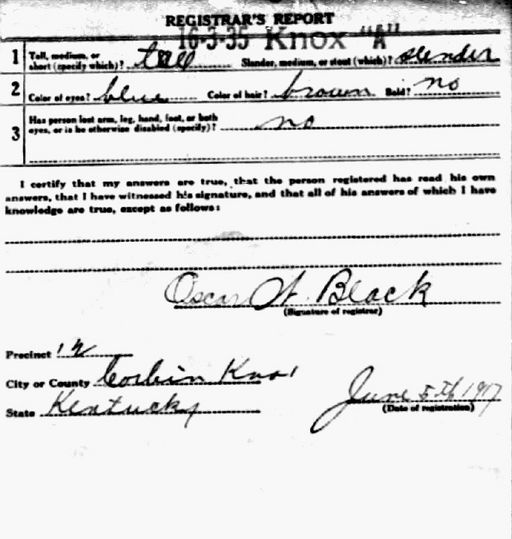 REGISTRAR'S REPORT
16-3-35 Knox "A"
1 Tall, medium, or short (specify which)? tall Slender, medium, or stout (which)? slender
2 Color of eyes? blue Color of hair? brown Bald? no
3 Has person lost arm, leg, hand, foot, or both eyes, or is he otherwise disabled (specify)? no
I certify that my answers are true, that the person registered has read his own
answers, that I have witnessed his signature, and that all of his answers of which I have
knowledge are true, except as follows:
Oscar W. Black
(Signature of registrar)
Precinct
City or County Corbin Knox
State Kentucky
June 5th 1917
(Date of registration)